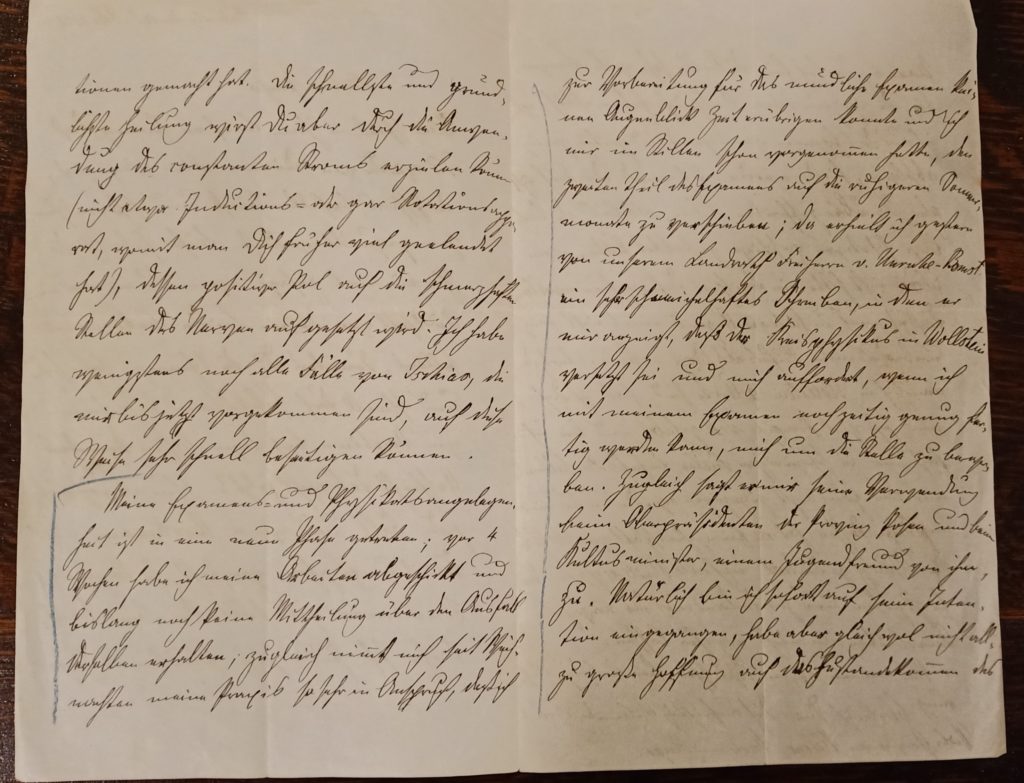 tionen gemacht hat. Die schnellste und gründ-
lichste Heilung wirst Du aber durch die Anwen-
dung des constanten Stroms erzielen können
(nicht etwa Inductions= oder gar Rotationsappa-
rat, womit man Dich früher viel geelendet
hat), dessen positiver Pol auf die schmerzhaften
Stellen des Nerven aufgesetzt wird. Ich habe
wenigstens noch alle Fälle von Ischias, die
mir bis jetzt vorgekommen sind, auf diese
Weise sehr schnell beseitigen können.
Meine Examens= und Physikatsangelegen-
heit ist in eine neue Phase getreten; vor 4
Wochen habe ich meine Arbeiten abgeschickt und
bislang noch keine Mittheilung über den Ausfall
derselben erhalten; zugleich nimmt mich seit Weih-
nachten meine Praxis so sehr in Anspruch, daß ich
zur Vorbereitung für das mündliche Examen kei-
nen Augenblick Zeit erübrigen konnte und ich
mir im Stillen schon vorgenommen hatte, den
zweiten Theil des Examens auf die ruhigeren Sommer-
monate zu verschieben; da erhielt ich gestern
von unserem Landrath Freiherrn v. Unruhe-Bomst
ein sehr schmeichelhaftes Schreiben, in dem er
mir anzeigt, daß der Kreisphysikus in Wollstein
versetzt sei und mich auffordert, wenn ich
mit meinem Examen noch zeitig genug fer-
tig werden kann, mich um die Stelle zu bewer-
ben. Zugleich sagt er mir seine Verwendung
beim Oberpräsidenten der Provinz Posen und beim
Kultusminister, einem Jugendfreund von ihm,
zu. Natürlich bin ich sofort auf seine Inten-
tion eingegangen, habe aber gleichwol nicht all-
zu große Hoffnung auf das Zustandekommen des